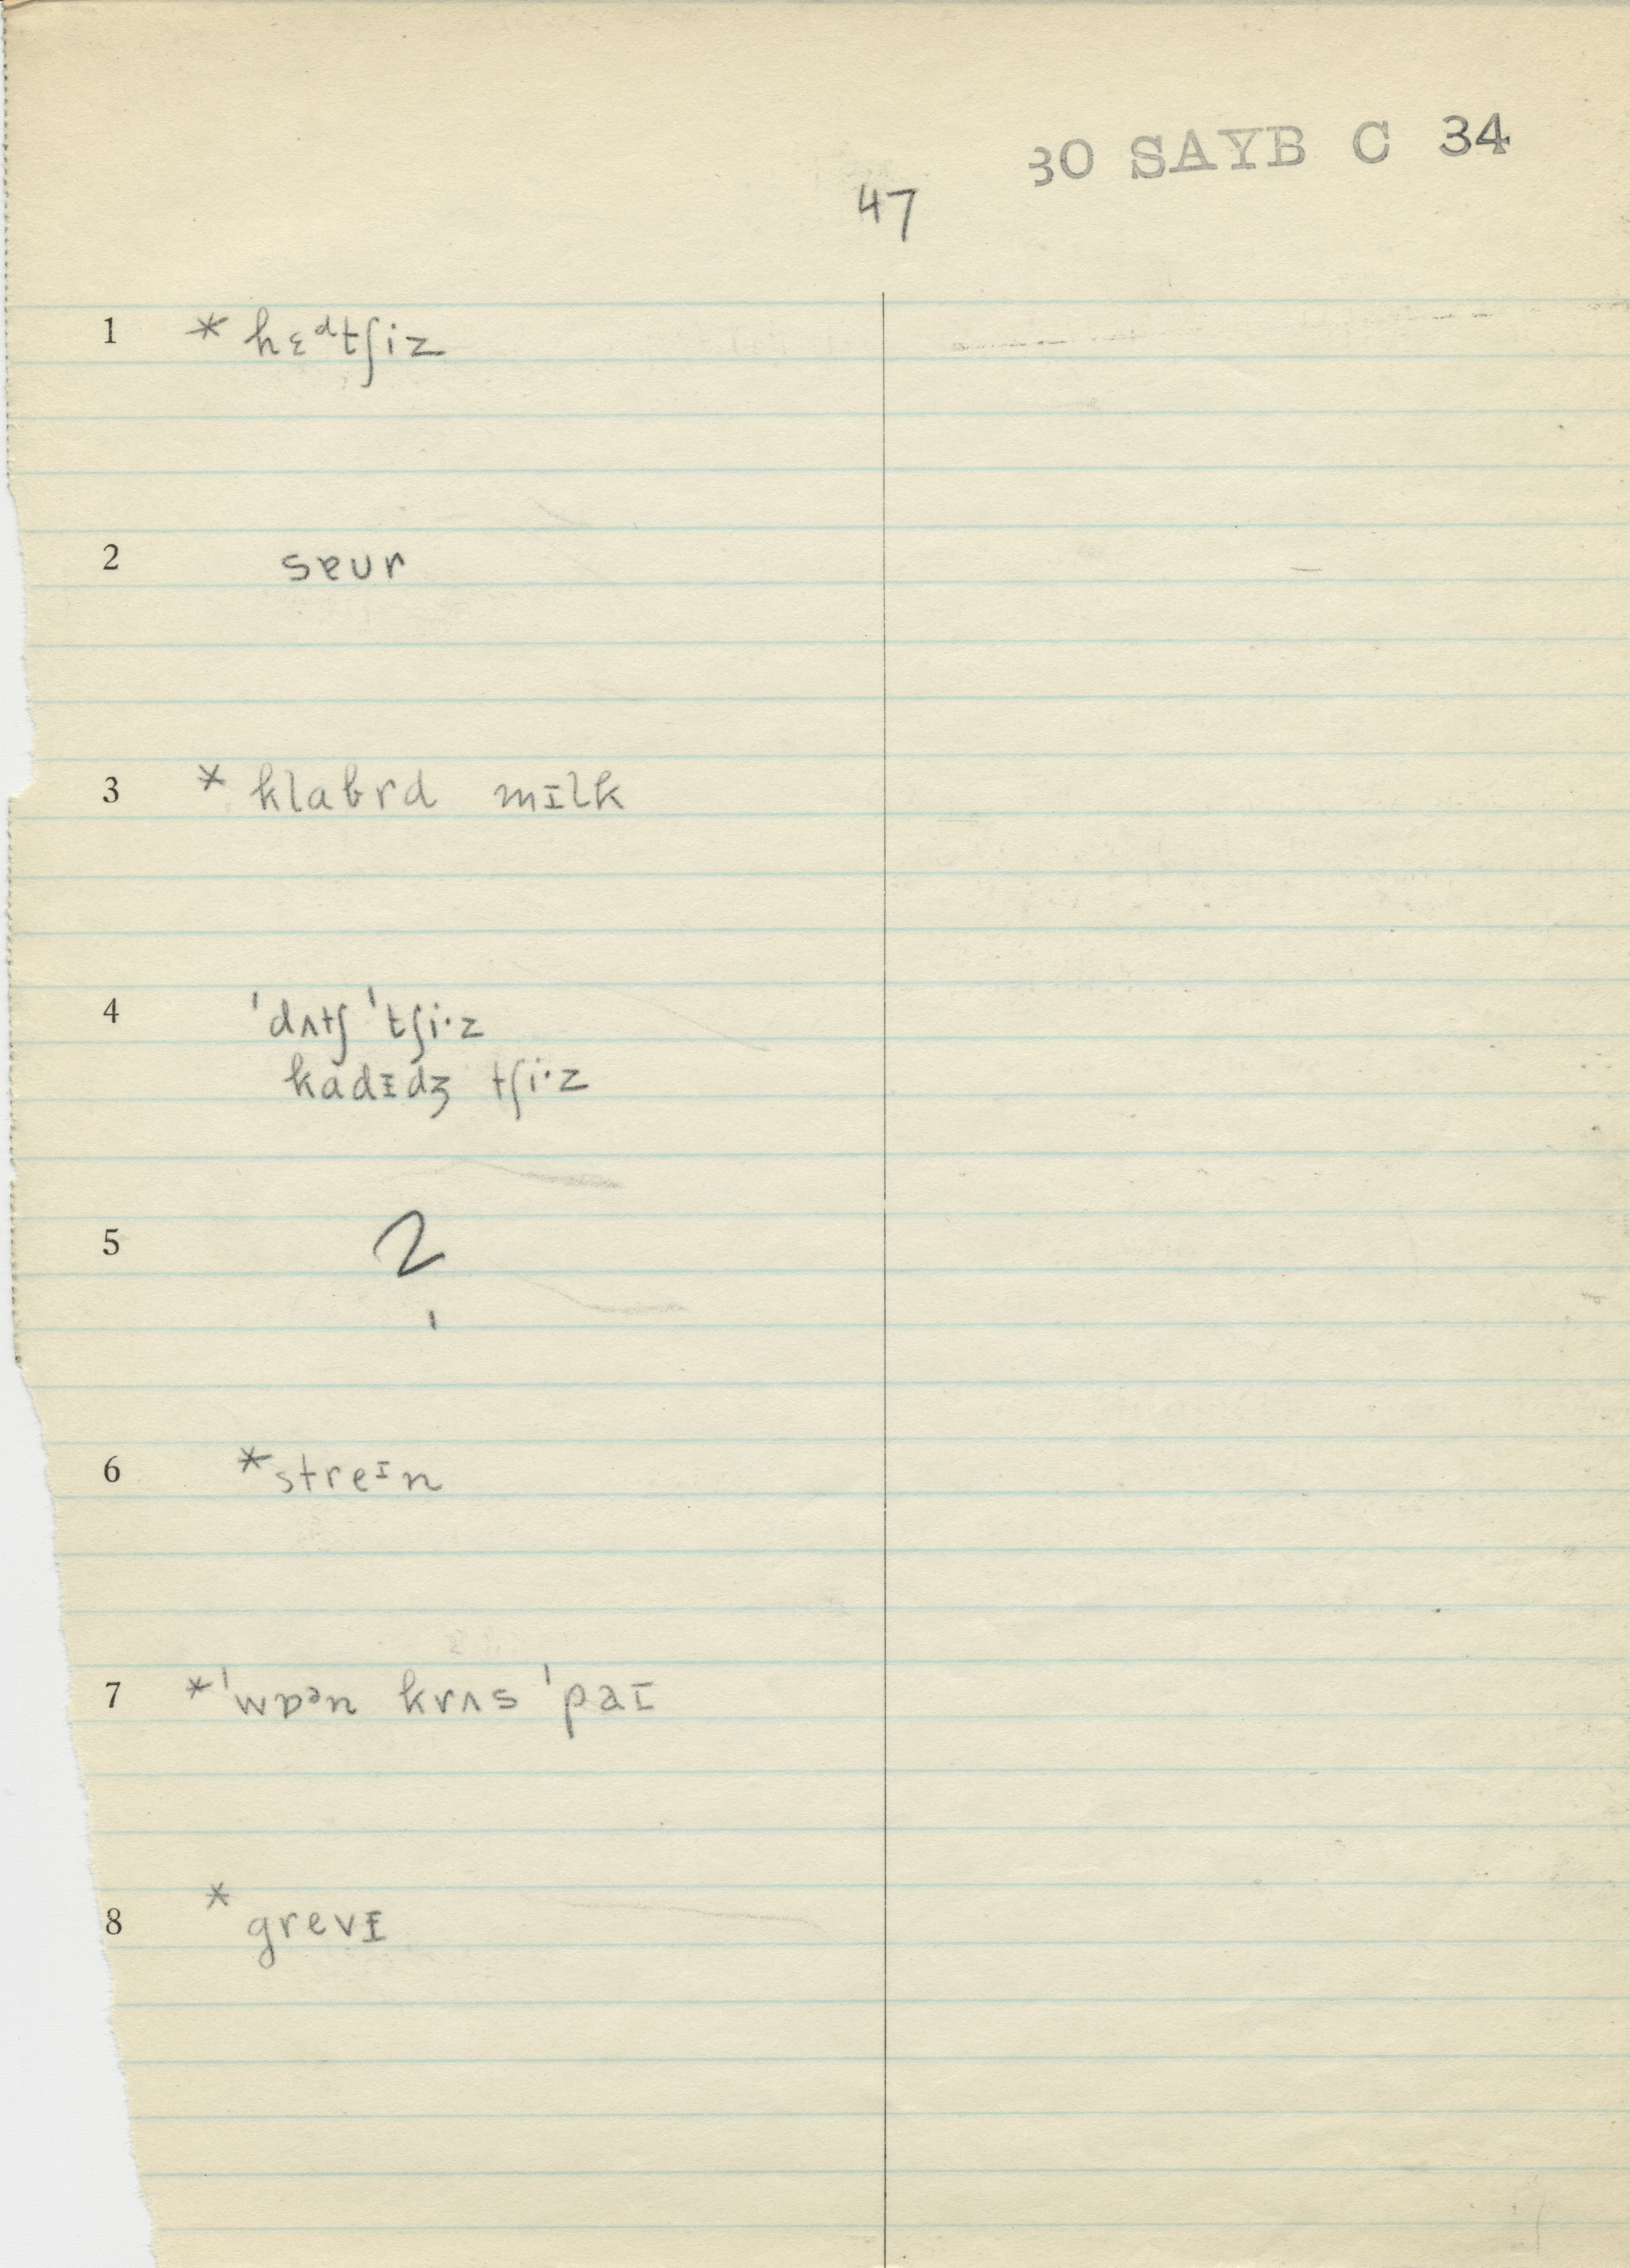 30 SAYB C 34
47
1 * hɛᵈtʃiz
2 sɐur
3 * klabrd mɪlk
4 ˈdʌtʃ ˈtʃi·z
kadɪdʒ tʃi·z
5 ?
6 *streᶦn
7 *ˈwɒᵊn krʌs ˈpaɪ
8 * grevɪ